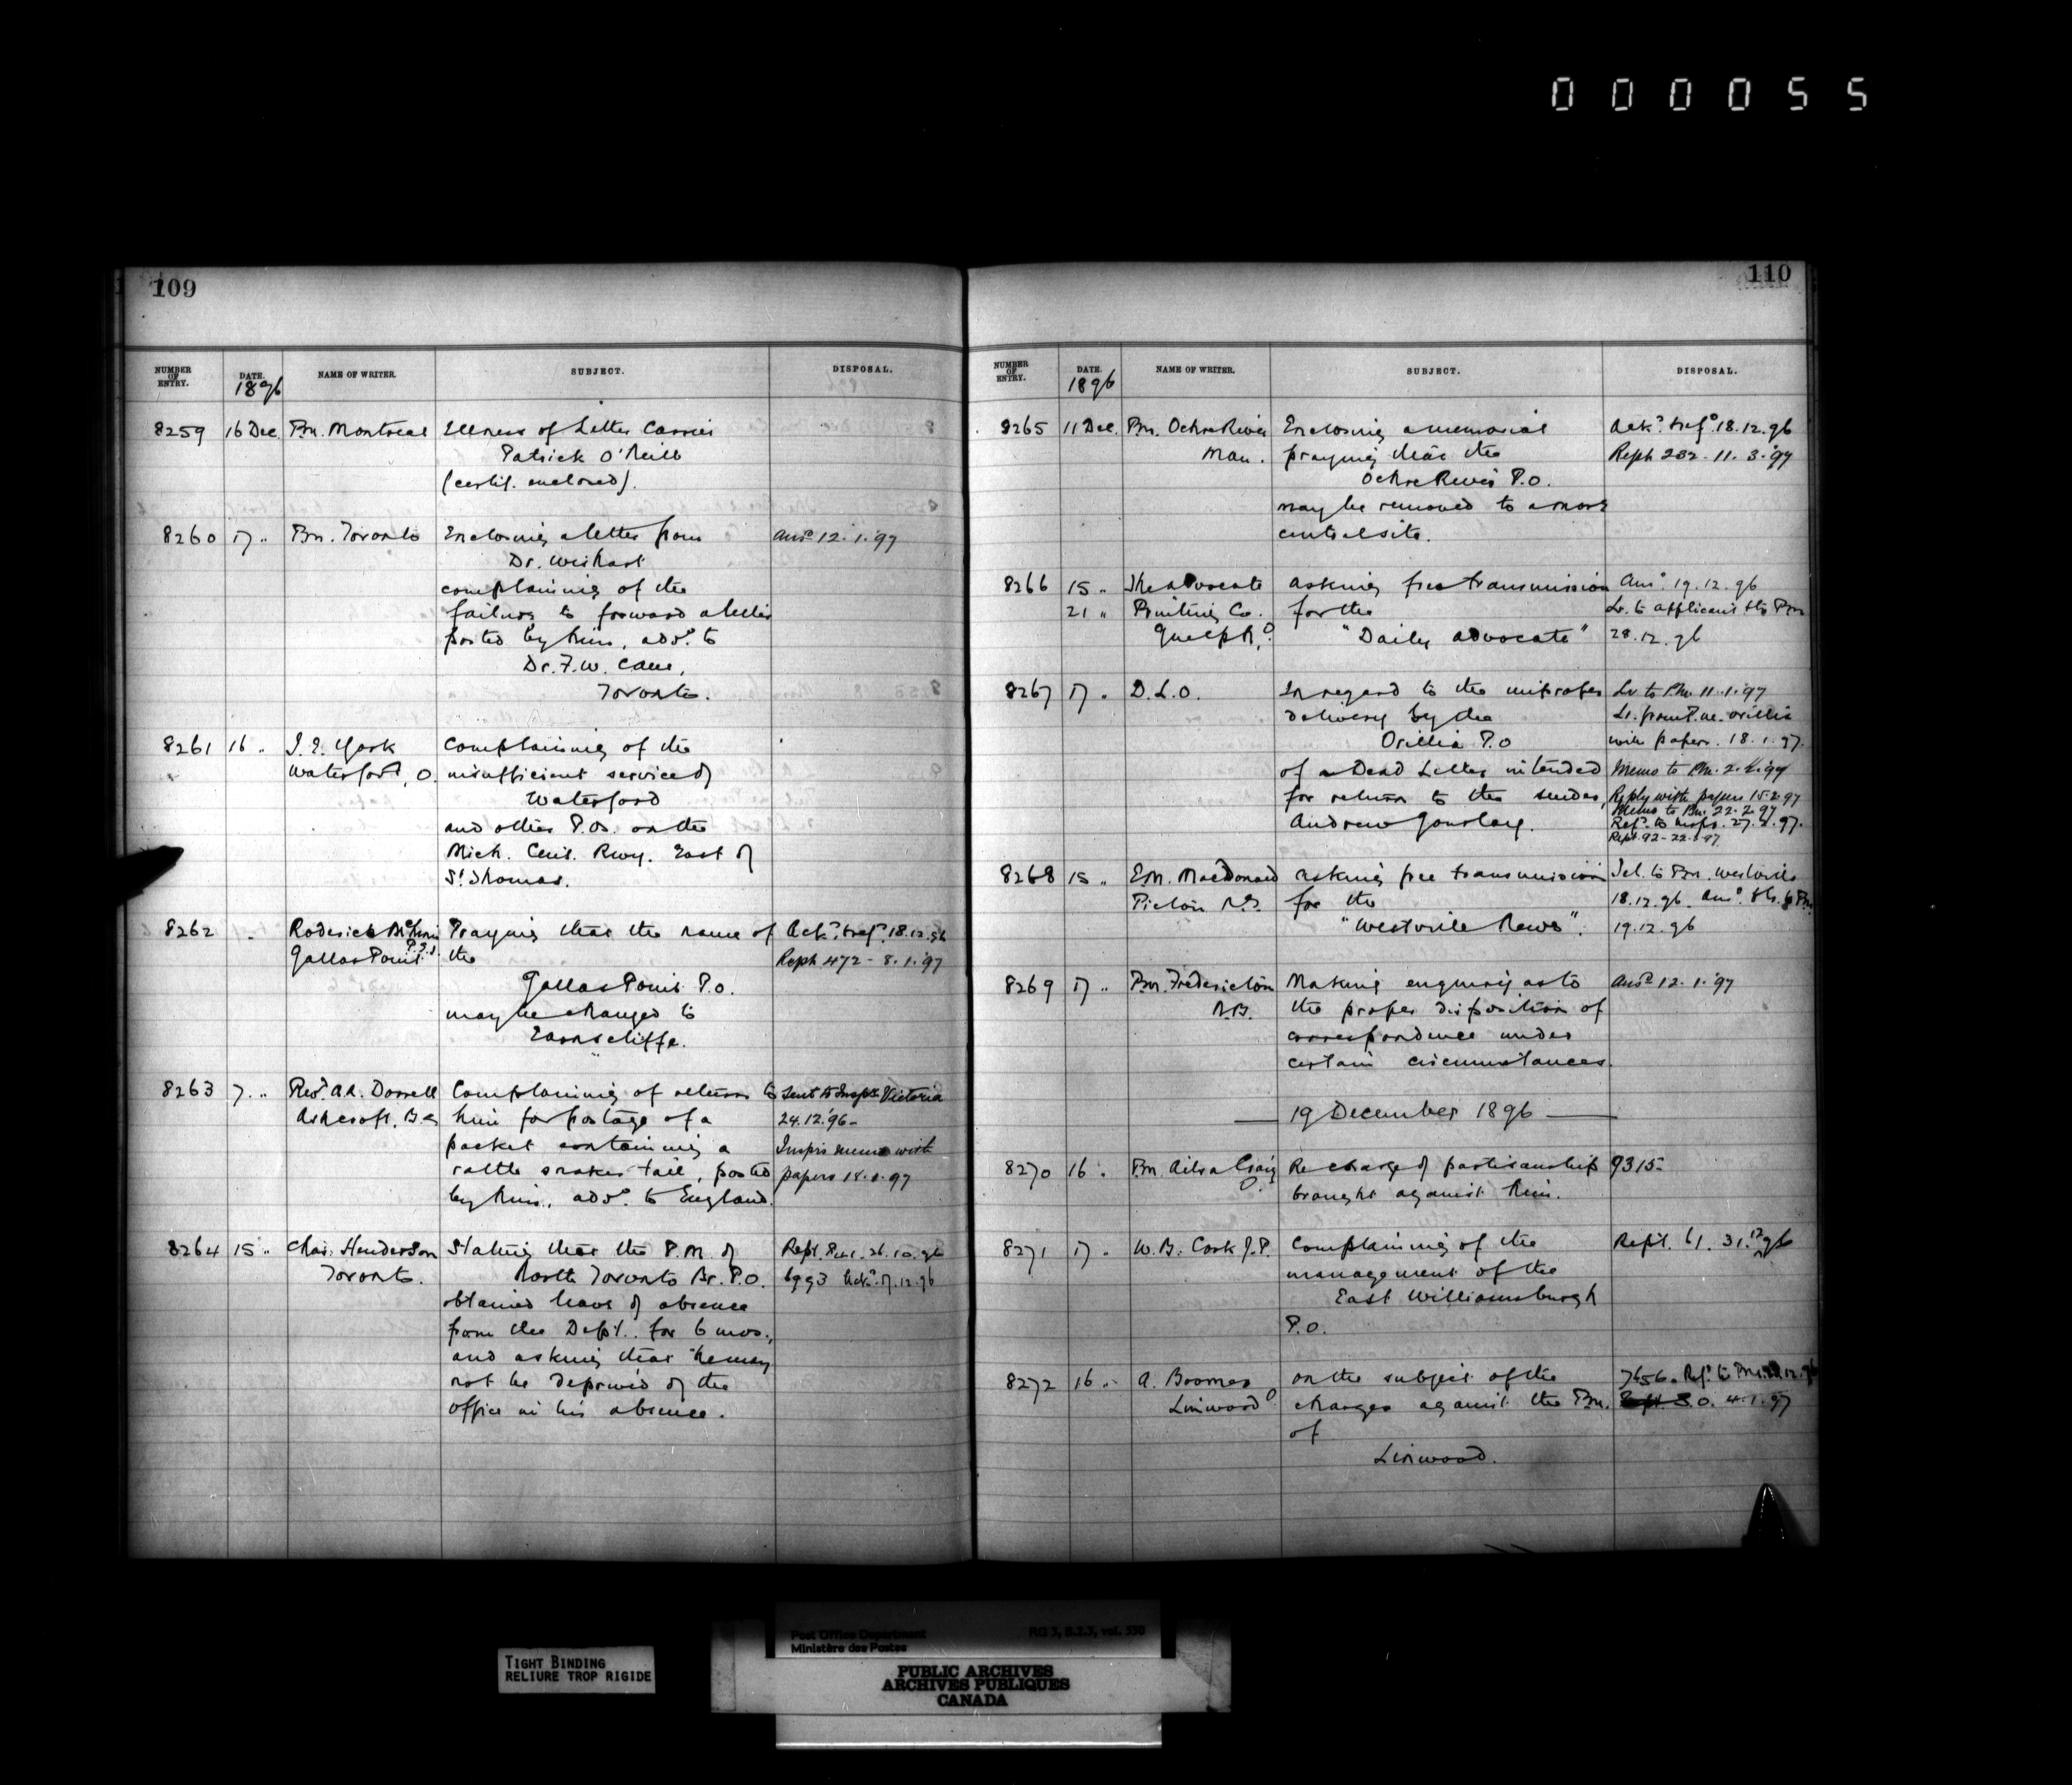 000055
109
NUMBER OF ENTRY. DATE. 1896 NAME OF WRITER. SUBJECT. DISPOSAL.
8259 16 Dec. Pm. Montreal Illness of Letter Carrier
Patrick O'Neill
(certif. enclosed).
8260 17 " Pm. Toronto Enclosing a letter from Ansd 12.1.'97
Dr. Wishart
complaining of the
failure to forward a letter
posted by him, addd. to
Dr. F.W. Cane,
Toronto.
8261 16 " J.E. York Complaining of the
Waterford, O. insufficient service of
Waterford
and other P.Os. on the
Mich. Cent. Rwy. East of
St. Thomas.
8262 " Roderick Praying that the name of Ackd. & refd. 18.12.96
Gallas Point P.E.I. the Reph 472 - 8.1.'97
Gallas Point P.O.
may be changed to
Earnscliffe.
8263 7 " Revd. A.A. Dorrell Complaining of return to Sent to Inspr. Victoria
Ashcroft, B.C. him for postage of a 24.12.'96
packet containing a Insprs memo with
rattle snakes tail, posted papers 18.1.97
by him, addd. to England.
8264 15 " Chas. Henderson Stating that the P.M. of Rept. 26.10.96
Toronto. North Toronto Br. P.O. 6993 Ackd. 17.12.96
obtained leave of absence
from the Dept. for 6 mos.,
and asking that he may
not be deprived of the
office in his absence.
110
NUMBER OF ENTRY. DATE. 1896 NAME OF WRITER. SUBJECT. DISPOSAL.
8265 11 Dec. Pm. Ochre River Enclosing a memorial Ackd. & refd. 18.12.96
Man. praying that the Reph 232 - 11.3.'97
Ochre River P.O.
may be removed to a more
central site.
8266 15 " The Advocate Asking free transmission Ansd. 19.12.96
21 " Printing Co. for the Lr. to applicant & to Pm
Guelph, O. "Daily Advocate" 28.12.96
8267 17 " D.L.O. In regard to the improper Lr. to Pm. 11.1.'97
delivery by the Lr. from P.M. Orillia
Orillia P.O with papers. 18.1.97.
of a Dead Letter intended Memo to Pm. 2.2.'97
for return to the sender, Reply with papers 15.2.97
Andrew Gourlay. Memo to Pm. 22.2.97
Refd. to Inspr. 27.2.97.
Rept. 92 -
8268 15 " E.M. MacDonald Asking free transmission Tel. to Pm. Westville
Pictou N.S. for the 18.12.96
"Westville News". 19.12.96
8269 17 " Pm. Fredericton Making enquiry as to Ansd 12.1.'97
N.B. the proper disposition of
correspondence under
certain circumstances.
19 December 1896
8270 16 " Pm. Ailsa Craig Re charge of partisanship 9315
O. brought against him.
8271 17 " W.B. Cook J.P. Complaining of the Rept. 61. 31.12.96
management of the
East Williamsburgh
P.O.
8272 16 " A. Boomer On the subject of the 7656. Refd. to Pm.
Linwood O. charges against the Pm. S.O. 4.1.97
of
Linwood.
Post Office Department RG 3, B.2.3, vol. 550
Ministère des Postes
TIGHT BINDING
RELIURE TROP RIGIDE
PUBLIC ARCHIVES
ARCHIVES PUBLIQUES
CANADA